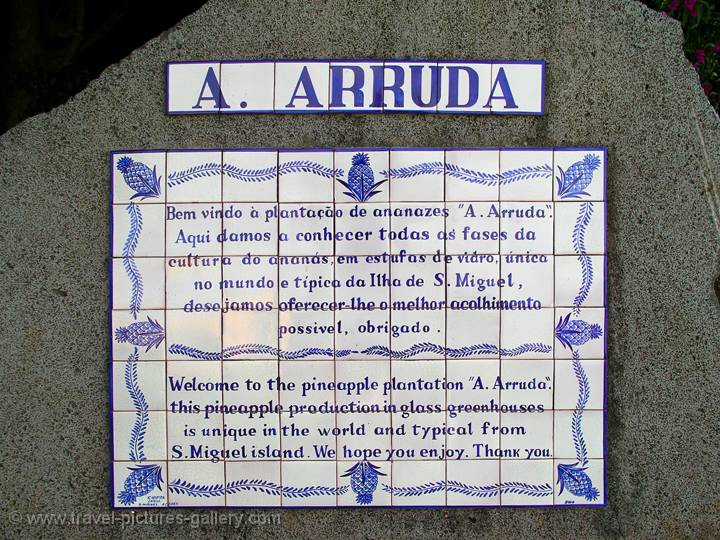 A. ARRUDA
Bem vindo à plantação de ananazes "A. Arruda".
Aqui damos a conhecer todas as fases da
cultura do ananás, em estufas de vidro, única
no mundo e típica da Ilha de S. Miguel,
desejamos oferecer-lhe o melhor acolhimento
possivel, obrigado.
Welcome to the pineapple plantation "A. Arruda".
this pineapple production in glass greenhouses
is unique in the world and typical from
S. Miguel island. We hope you enjoy. Thank you.
© www.travel-pictures-gallery.com